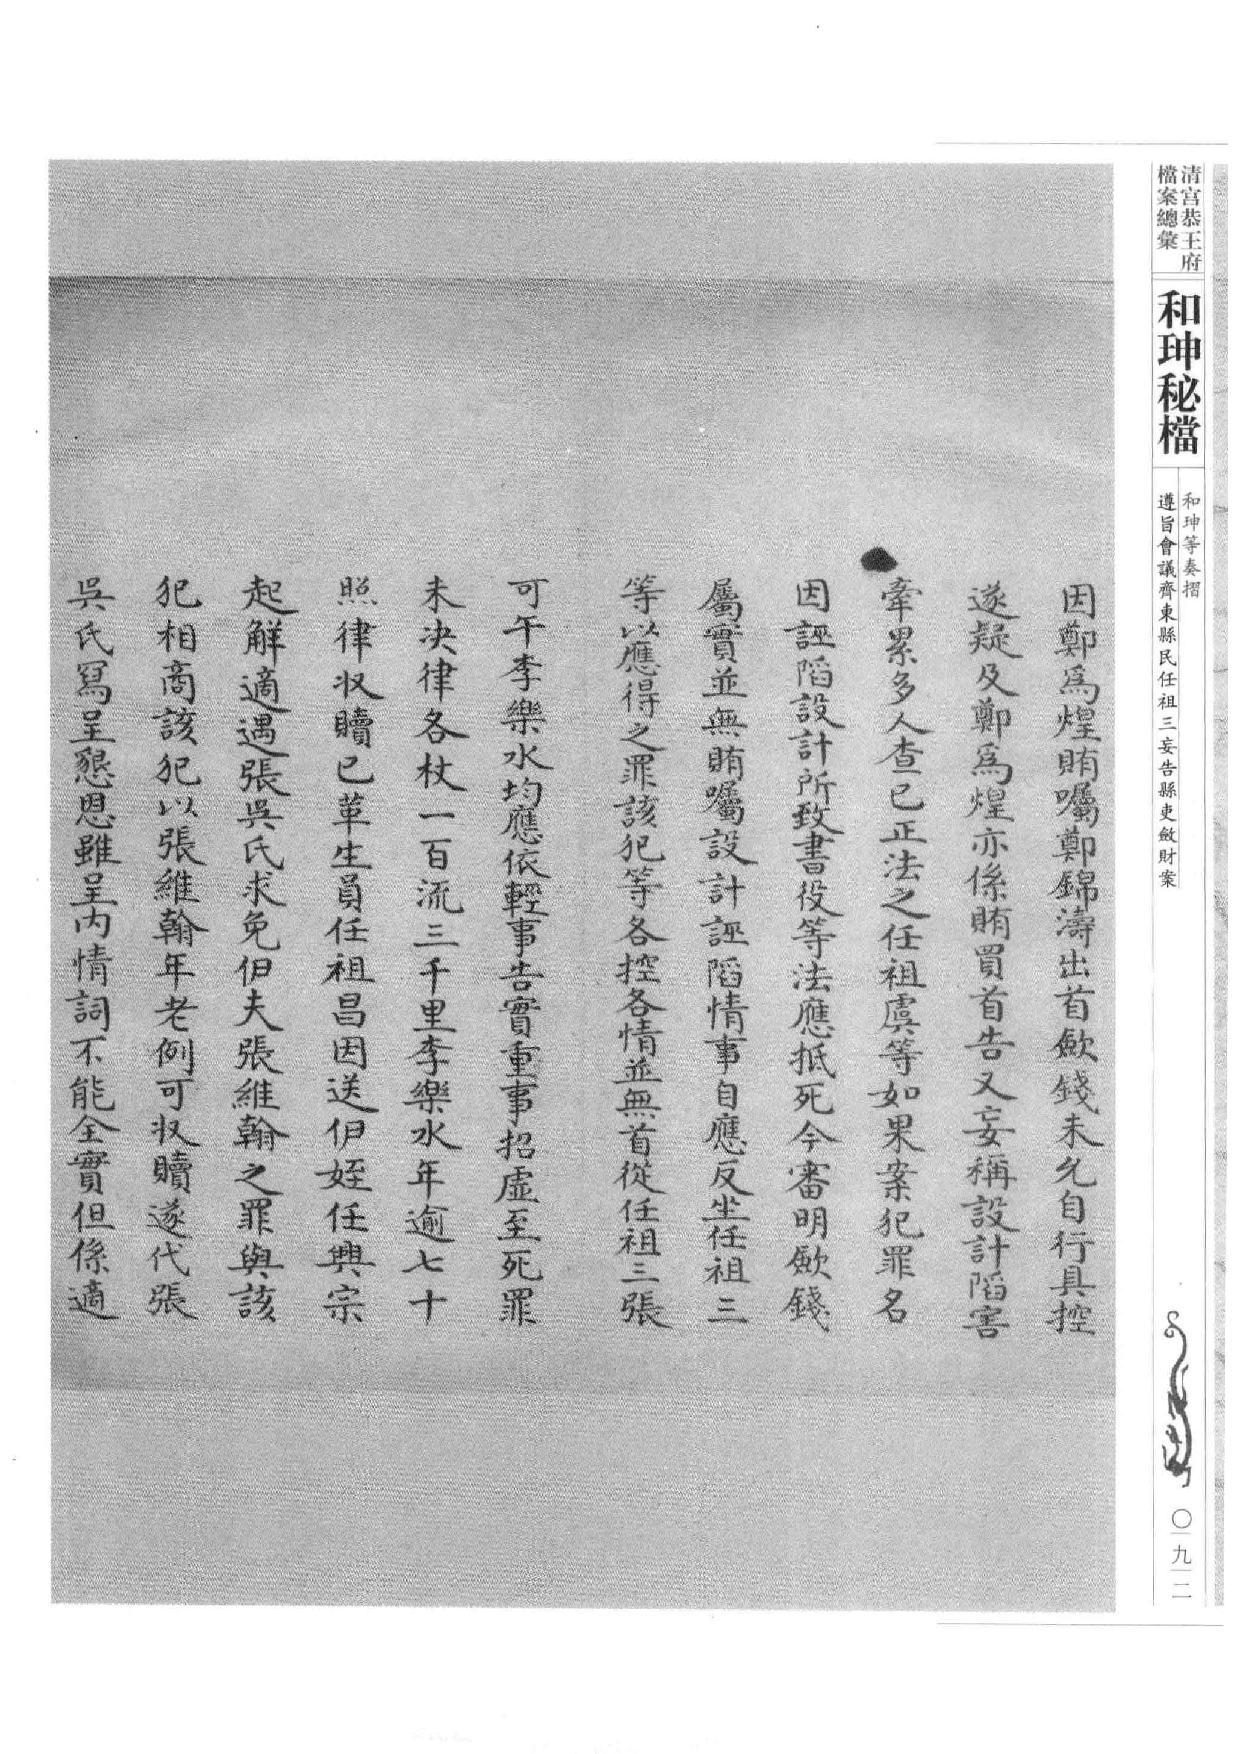 清宮恭王府
檔案總彙
和珅秘檔
和珅等奏摺
遵旨會議齊東縣民任祖三妄告縣吏斂財案
因鄭為煌賄囑鄭錦濤出首歛錢未允自行具控
遂疑及鄭為煌亦係賄買首告又妄稱設計陷害
牽累多人查已正法之任祖虞等如果案犯罪名
因誣陷設計所致書役等法應抵死今審明歛錢
屬實並無賄囑設計誣陷情事自應反坐任祖三
等以應得之罪該犯等各控各情並無首從任祖三張
可午李樂水均應依輕事告實重事招虛至死罪
未決律各杖一百流三千里李樂水年逾七十
照律收贖已革生員任祖昌因送伊姪任興宗
起解適遇張吳氏求免伊夫張維翰之罪與該
犯相商該犯以張維翰年老例可收贖遂代張
吳氏寫呈懇恩雖呈內情詞不能全實但係適
〇九二